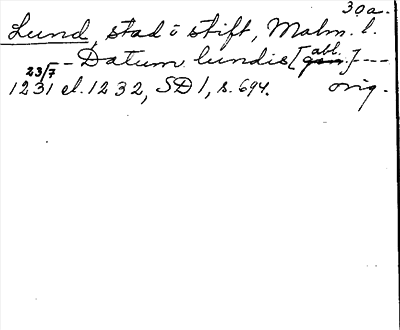 30a.
Lund, stad o stift, Malm. l.
-- Datum lundis [abl.] ----
23/7
1231 el. 1232, SD 1, s. 694. orig.